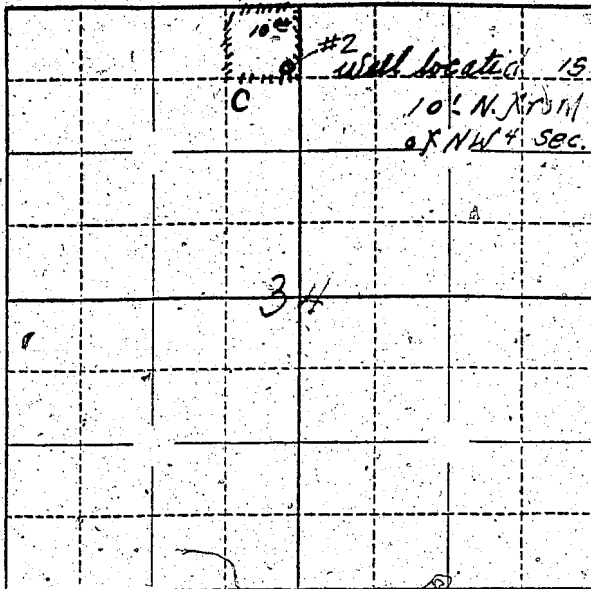 10 ac
#2
well location is
10' N. from
of NW 4 sec.
C
34